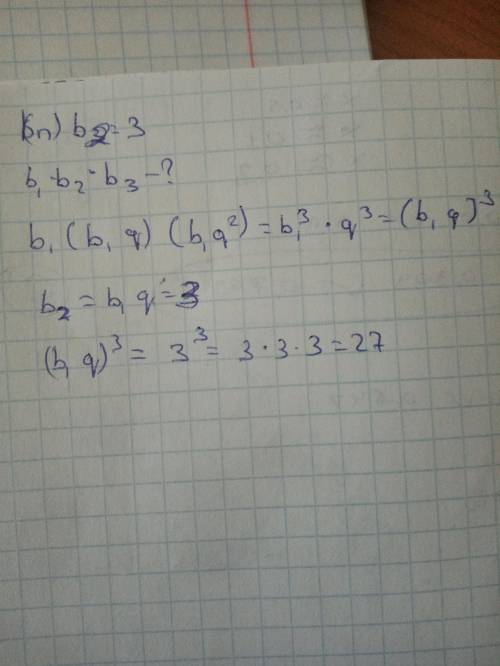 (bn) b2 = 3
b1 · b2 · b3 - ?
b1 (b1 q) (b1q²) = b1³ · q³ = (b1 q)³
b2 = b1 q = 3
(b1 q)³ = 3³ = 3 · 3 · 3 = 27